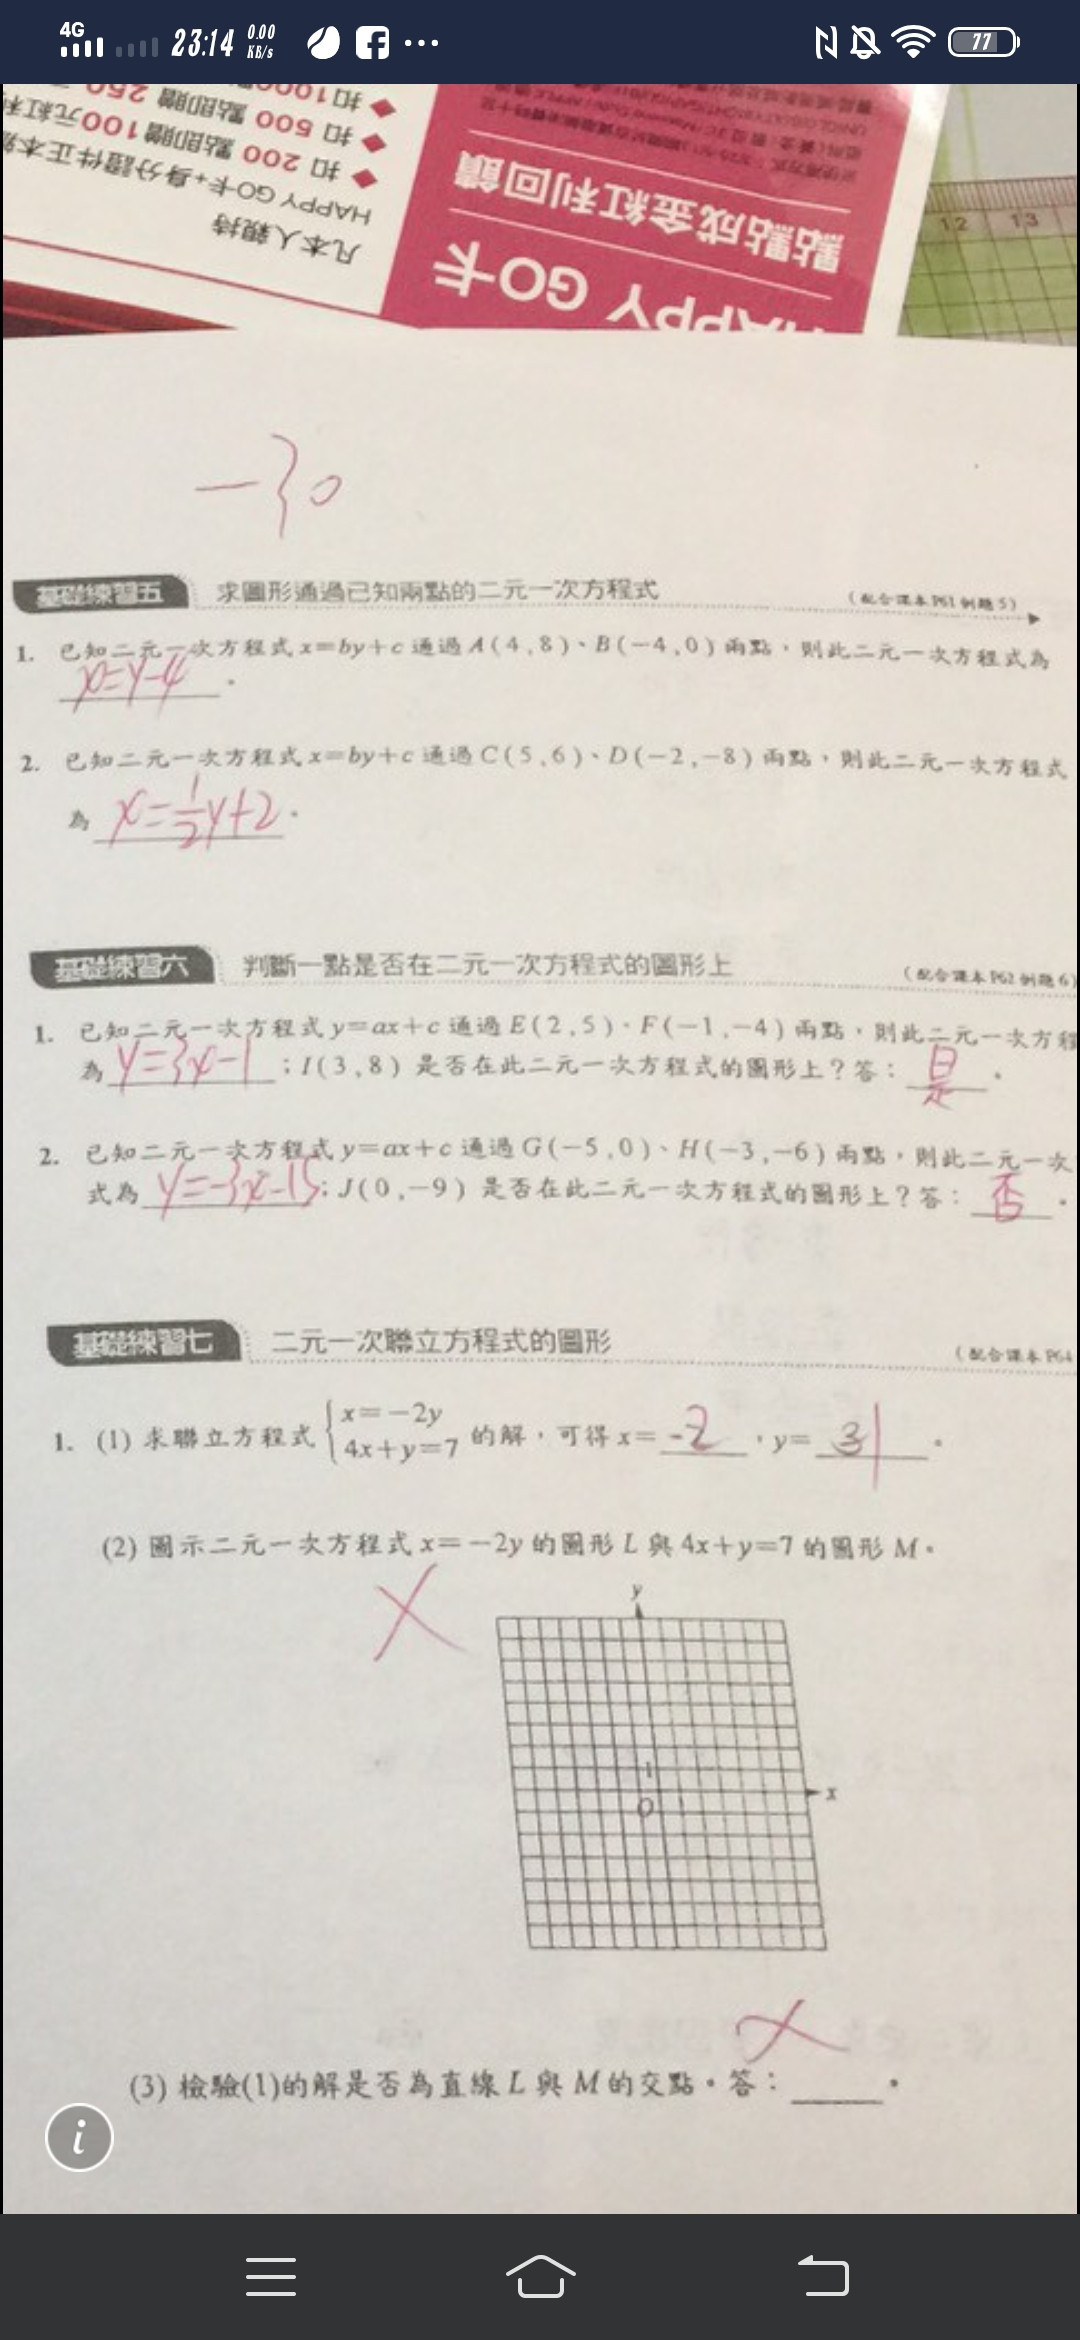 4G 23:14 0.00 KB/s 77
扣1000
扣 500 點即贈 250
扣 200 點即贈100元紅利
HAPPY GO卡+身分證件正本
凡本人親持
點點成金紅利回饋
HAPPY GO卡
12 13
-30
基礎練習五 求圖形通過已知兩點的二元一次方程式 (配合課本P61例題5)
1. 已知二元一次方程式x=by+c通過A(4,8)、B(-4,0)兩點,則此二元一次方程式為
x=y-4。
2. 已知二元一次方程式x=by+c通過C(5,6)、D(-2,-8)兩點,則此二元一次方程式
為 x=1/2y+2。
基礎練習六 判斷一點是否在二元一次方程式的圖形上 (配合課本P62例題6)
1. 已知二元一次方程式y=ax+c通過E(2,5)、F(-1,-4)兩點,則此二元一次方程
為 y=3x-1;I(3,8)是否在此二元一次方程式的圖形上?答:是。
2. 已知二元一次方程式y=ax+c通過G(-5,0)、H(-3,-6)兩點,則此二元一次
式為 y=-3x-15;J(0,-9)是否在此二元一次方程式的圖形上?答:否。
基礎練習七 二元一次聯立方程式的圖形 (配合課本P64
1. (1) 求聯立方程式 { x=-2y
4x+y=7 的解,可得x=-2,y=3。
(2) 圖示二元一次方程式x=-2y的圖形L與4x+y=7的圖形M。
y
1
O
x
(3) 檢驗(1)的解是否為直線L與M的交點。答:____。
i